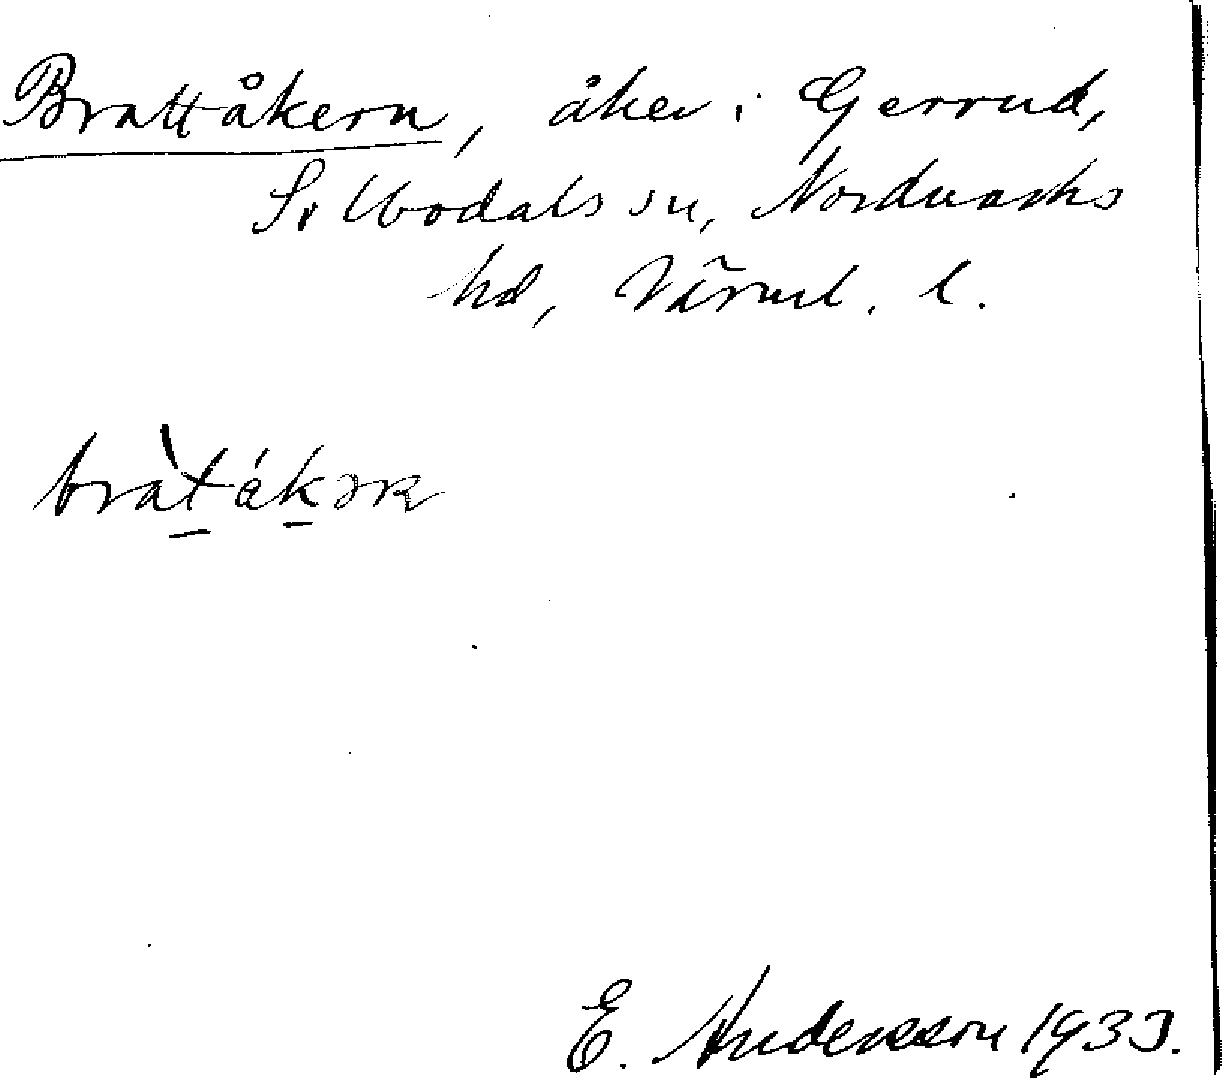 Brattåkern, åker i Gerrud,
Sillbodals sn, Nordmarks
hd, Värml. l.
bràt̠ák̠ər
E. Andersson 1933.